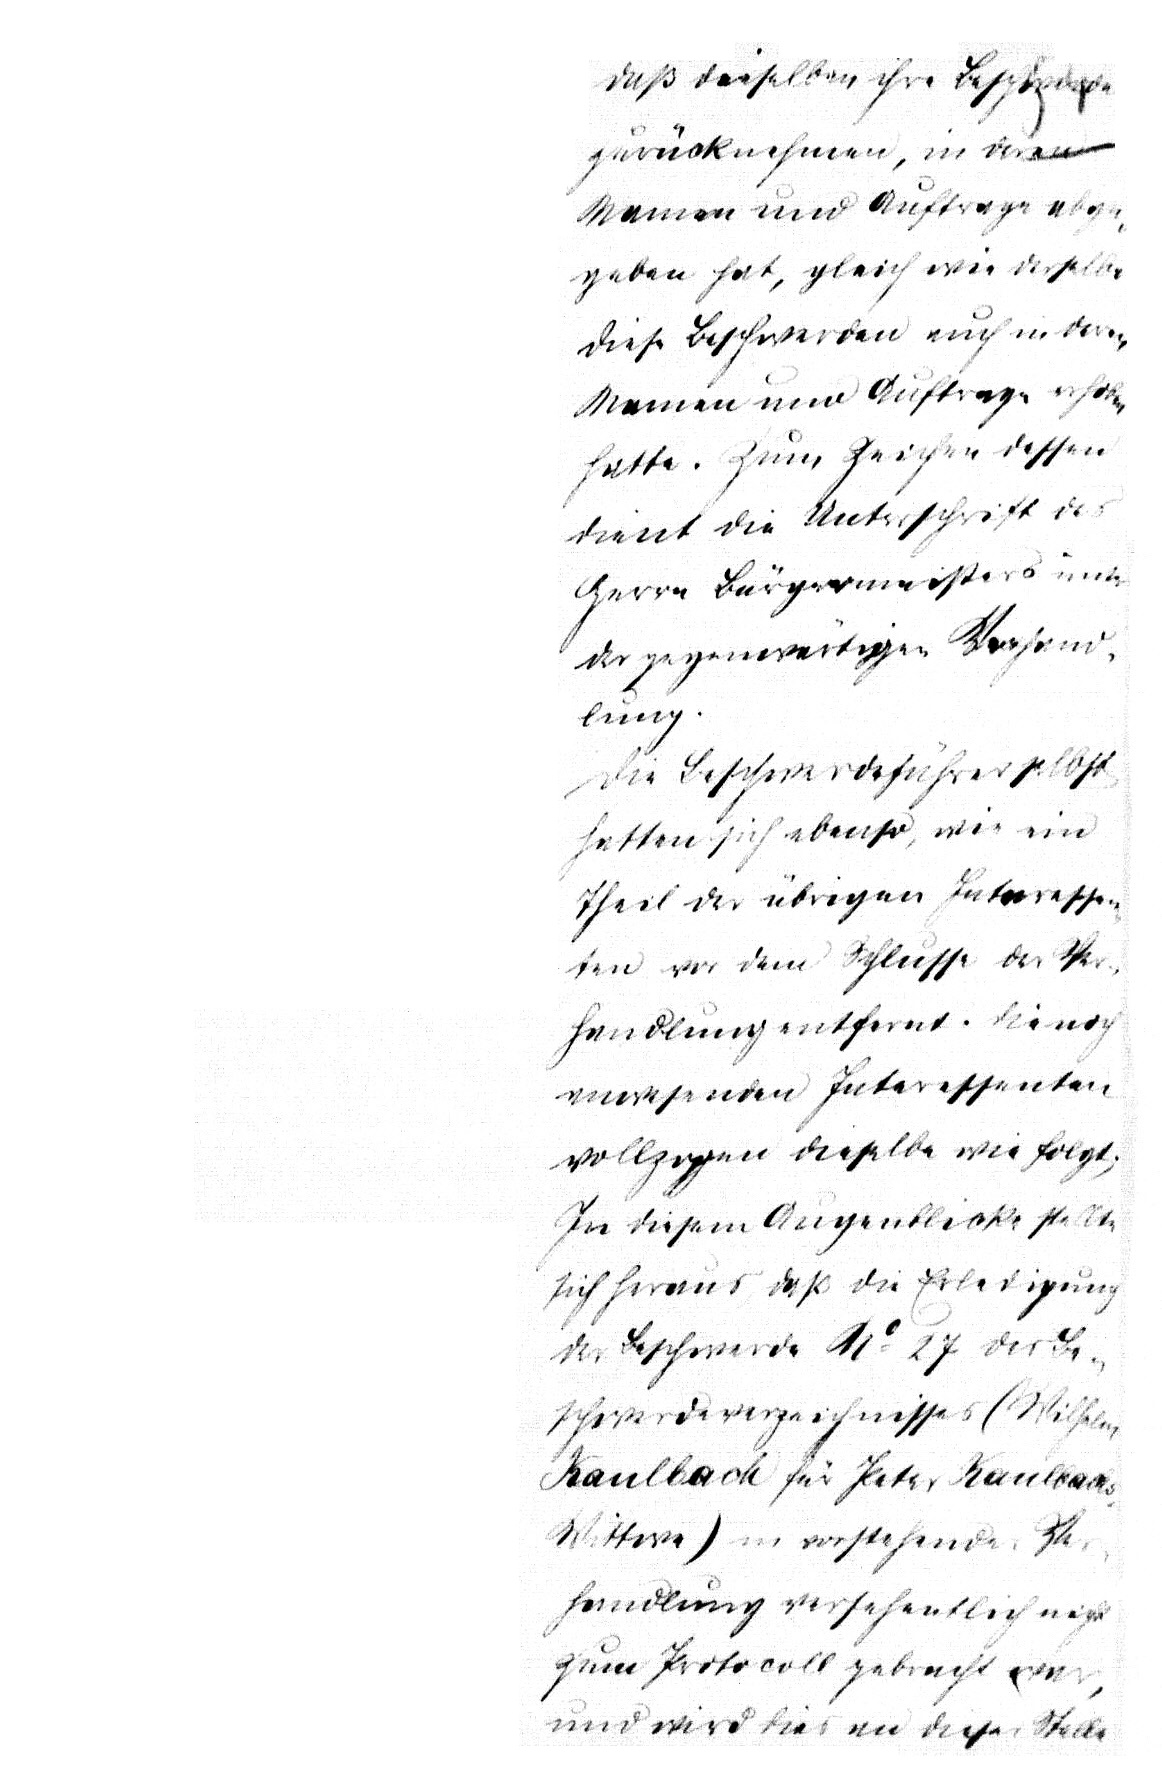 daß dieselben ihre Beschwerde
zurücknehmen, in deren
Namen und Auftrage abge-
geben hat, gleich wie derselbe
diese Beschwerden auch in deren
Namen und Auftrage erhoben
hatte. Zum Zeichen dessen
dient die Unterschrift des
Herrn Bürgermeisters unter
der gegenwärtigen Verhand-
lung.
Die Beschwerdeführer selbst
hatten sich ebenso, wie ein
Theil der übrigen Interessen-
ten vor dem Schlusse der Ver-
handlung entfernt. Die noch
anwesenden Interessenten
vollzogen dieselbe wie folgt;
In diesem Augenblicke stellte
sich heraus, daß die Erledigung
der Beschwerde No 27 des Be-
schwerdeverzeichnisses (Wilhelm
Kaulbach für Peter Kaulbachs
Wittwe) in vorstehender Ver-
handlung versehentlich nicht
zum Protocoll gebracht war,
und wird dies an dieser Stelle